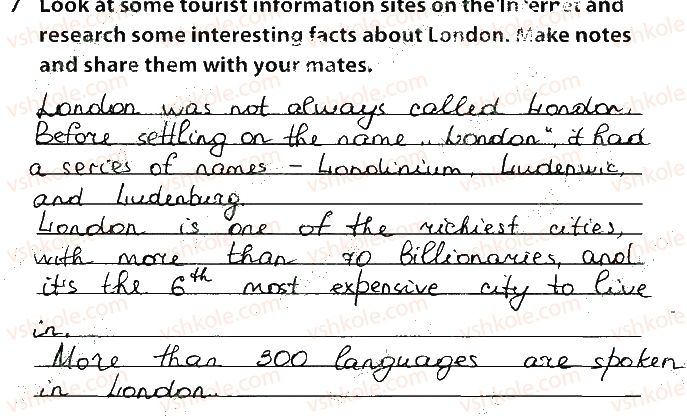 7 Look at some tourist information sites on the Internet and
research some interesting facts about London. Make notes
and share them with your mates.
London was not always called London.
Before settling on the name „London“, it had
a series of names – Londinium, Ludenwic,
and Ludenburg.
London is one of the richiest cities,
with more than 70 billionaries, and
it's the 6th most expensive city to live
in.
More than 300 languages are spoken
in London.